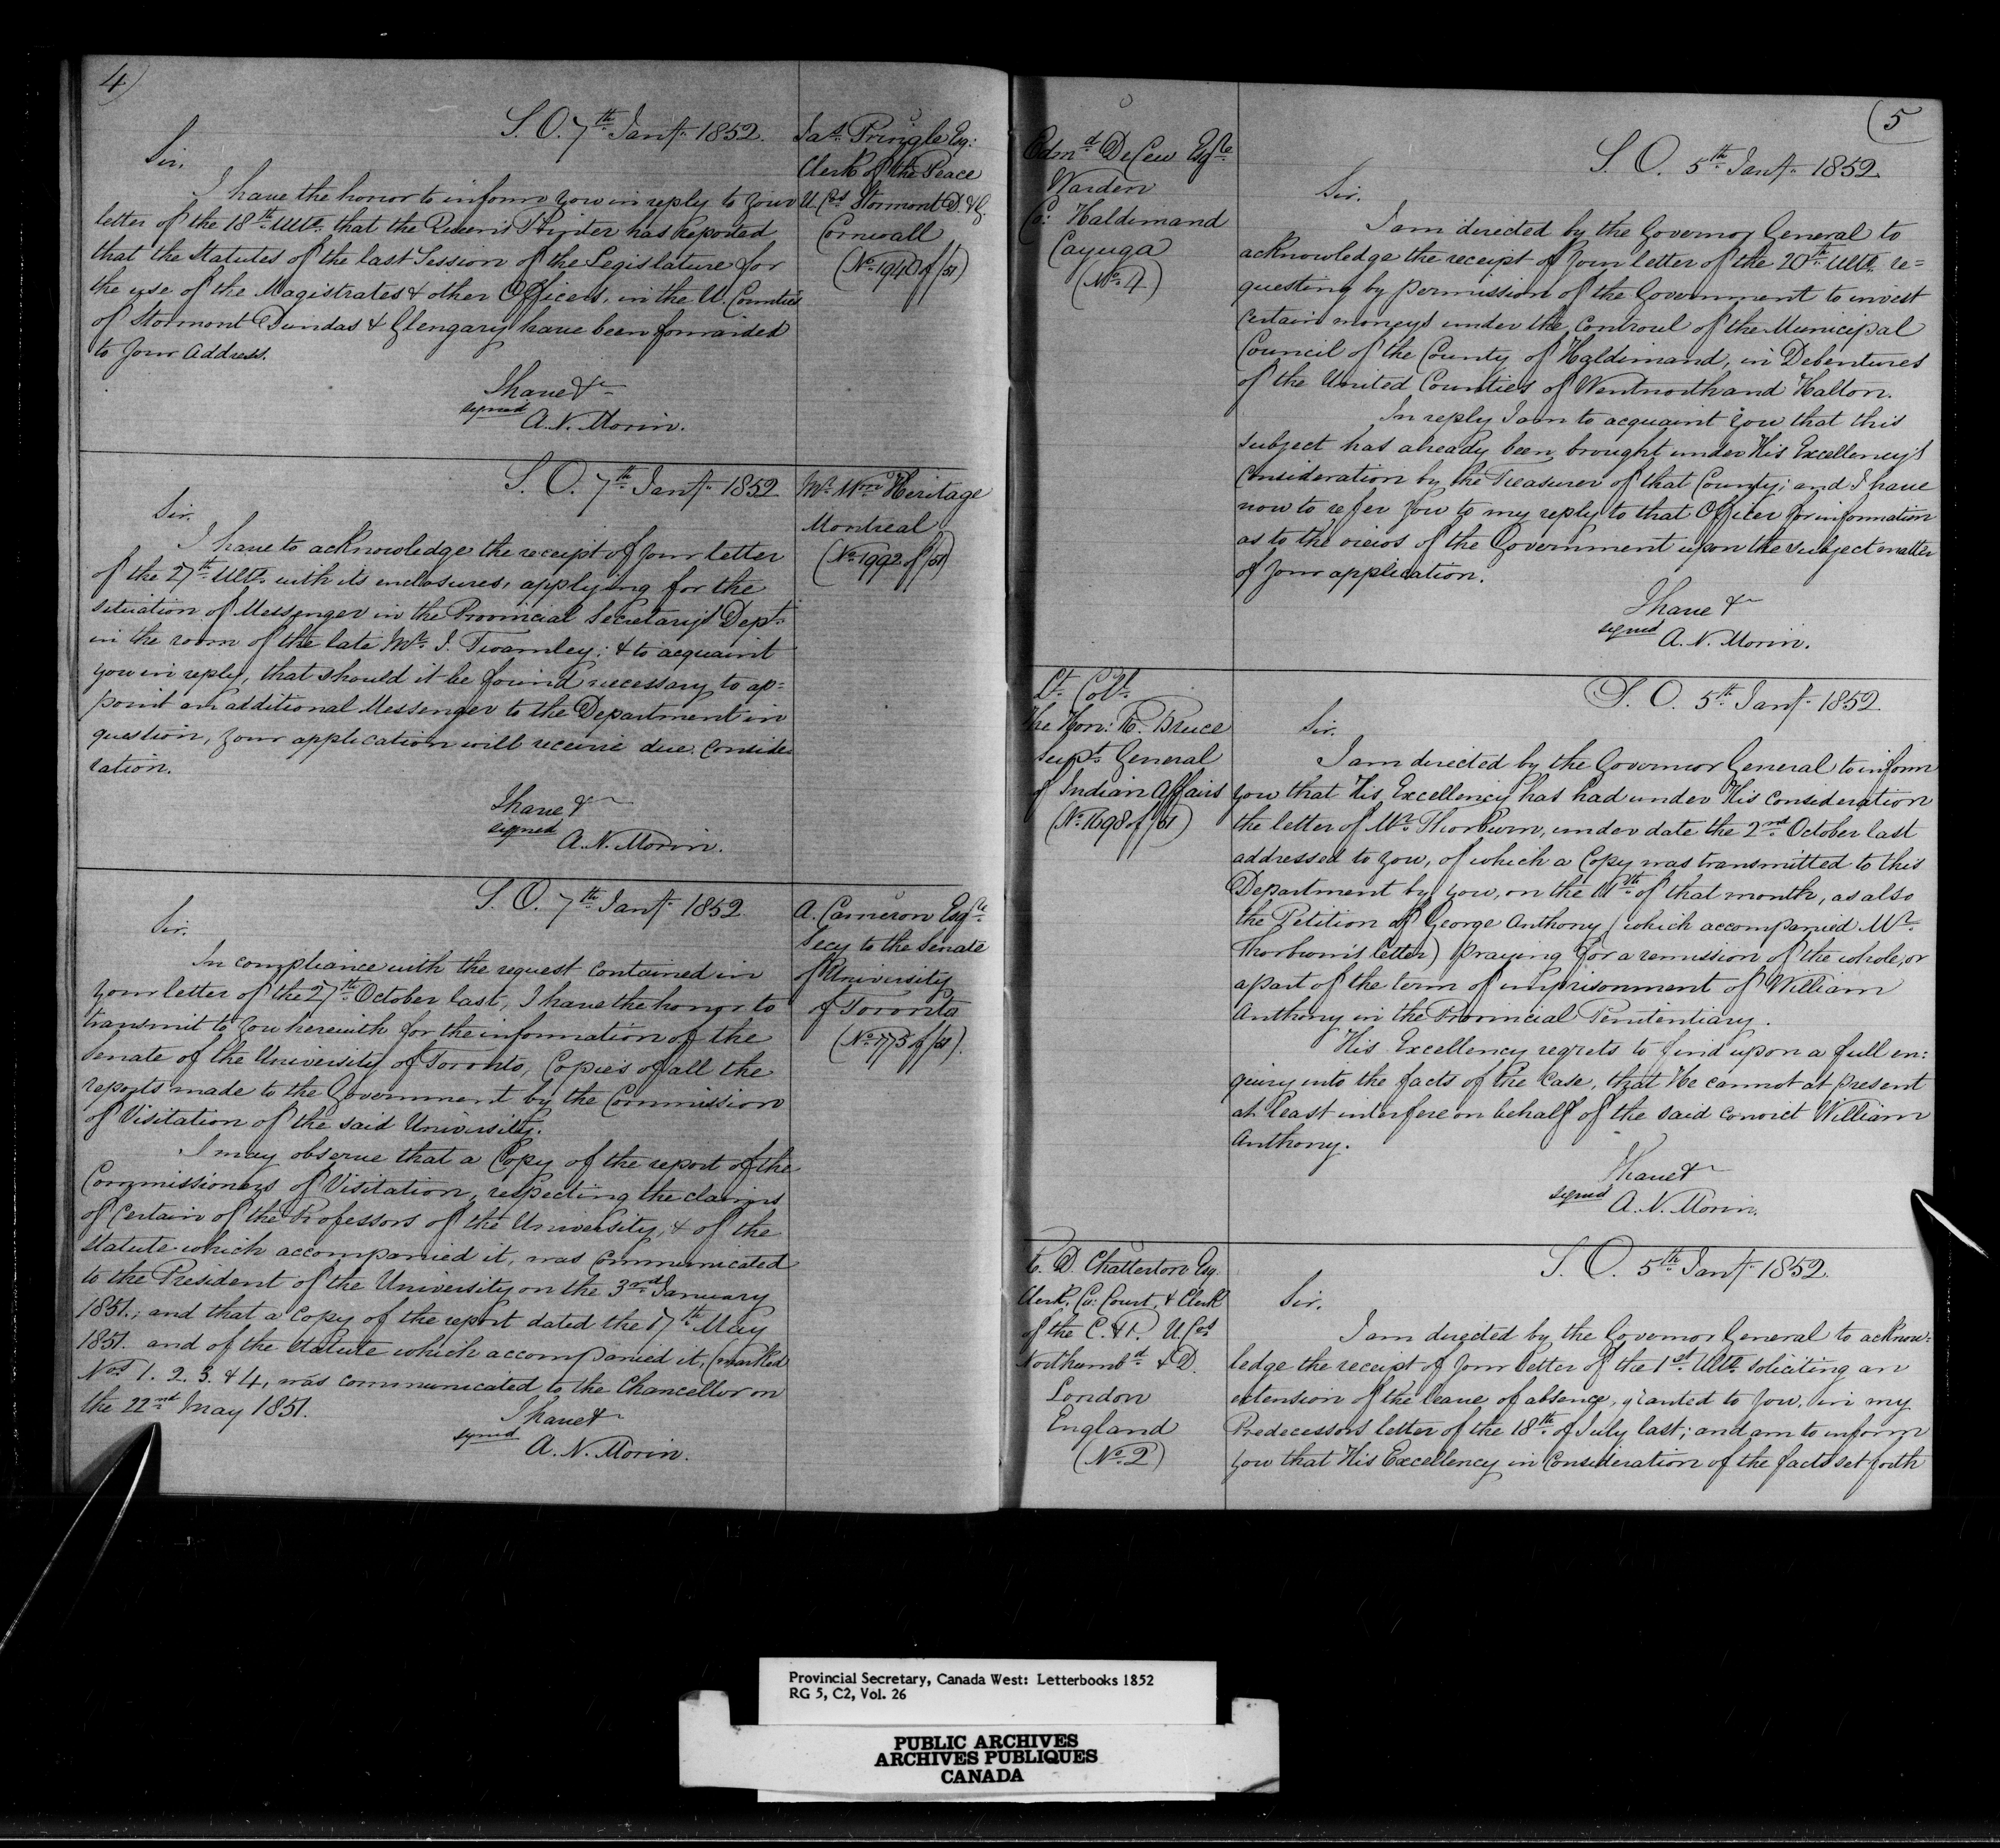 4)
S. O. 7th Jany. 1852.
Jas. Pringle Esq:
Clerk of the Peace
U. Cos Stormont D. & G.
Cornwall
(No. 1940 of /51)
Sir.
I have the honor to inform you in reply to your
letter of the 18th Ulto. that the Queen's Printer has reported
that the Statutes of the last Session of the Legislature for
the use of the Magistrates & other Officers, in the U. Counties
of Stormont Dundas & Glengary have been forwarded
to your address.
I have &c
signed
A. N. Morin.
S. O. 7th Jany. 1852
Mr. Wm Heritage
Montreal
(No. 1992 of /51)
Sir.
I have to acknowledge the receipt of your letter
of the 27th Ulto. with its enclosures, applying for the
situation of Messenger in the Provincial Secretary's Dept.
in the room of the late Mr. J. Twamley; & to acquaint
you in reply, that should it be found necessary to ap=
point an additional Messenger to the Department in
question, your application will receive due conside
ration.
I have &c
signed
A. N. Morin.
S. O. 7th Jany. 1852
A. Cameron Esqre
Secy to the Senate
of University
of Toronto
(No. 1775 of /51).
Sir.
In compliance with the request contained in
your letter of the 27th October last, I have the honor to
transmit to you herewith for the information of the
Senate of the University of Toronto, Copies of all the
reports made to the Government by the Commission
of Visitation of the said University.
I may observe that a Copy of the report of the
Commissioners of Visitation, respecting the claims
of certain of the Professors of the University, & of the
Statute which accompanied it, was communicated
to the President of the University on the 3rd January
1851.; and that a copy of the report dated the 17th May
1851. and of the Statute which accompanied it, (marked
Nos 1. 2. 3. & 4, was communicated to the Chancellor on
the 22nd May 1851.
I have &c
signed
A. N. Morin.
(5
Edmd DeCew Esqre
Warden
Co: Haldimand
Cayuga
(No. 4)
S. O. 5th Jany. 1852.
Sir.
I am directed by the Governor General to
acknowledge the receipt of your letter of the 20th Ulto. re=
questing by permission of the Government to invest
certain moneys under the controul of the Municipal
Council of the County of Haldimand, in Debentures
of the United Counties of Wentworth and Halton.
In reply I am to acquaint you that this
subject has already been brought under His Excellency's
consideration by the Treasurer of that County; and I have
now to refer you to my reply to that Officer for information
as to the views of the Government upon the subject matter
of your application.
I have &c
signed
A. N. Morin.
Lt. Coll.
The Hon: R. Bruce
Supt. General
of Indian Affairs
(No. 1698 of /51)
S. O. 5th Jany. 1852
Sir.
I am directed by the Governor General to inform
you that His Excellency has had under His consideration
the letter of Mr. Thorburn, under date the 2nd October last
addressed to you, of which a Copy was transmitted to this
Department by you, on the 11th of that month, as also
the Petition of George Anthony (which accompanied Mr.
Thorburn's letter) praying for a remission of the whole, or
a part of the term of imprisonment of William
Anthony in the Provincial Penitentiary.
His Excellency regrets to find upon a full en:
quiry into the facts of the case, that He cannot at present
at least interfere on behalf of the said convict William
Anthony.
I have &c
signed
A. N. Morin.
R. D. Chatterton Esq.
Clerk, Co: Court, & Clerk
of the C. & P. U. Cos
Northumbd & D.
London
England
(No. 2)
S. O. 5th Jany. 1852.
Sir.
I am directed by the Governor General to acknow:
ledge the receipt of your letter of the 1st Ulto. soliciting an
extension of the leave of absence, granted to you, in my
Predecessors letter of the 18th of July last; and am to inform
you that His Excellency in consideration of the facts set forth
Provincial Secretary, Canada West: Letterbooks 1852
RG 5, C2, Vol. 26
PUBLIC ARCHIVES
ARCHIVES PUBLIQUES
CANADA